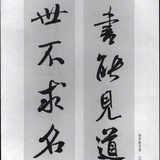 書能見道
世不求名